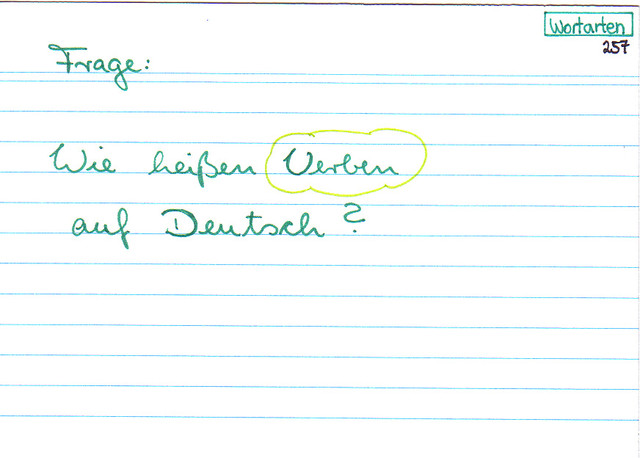 Wortarten
257
Frage:
Wie heißen Verben
auf Deutsch?